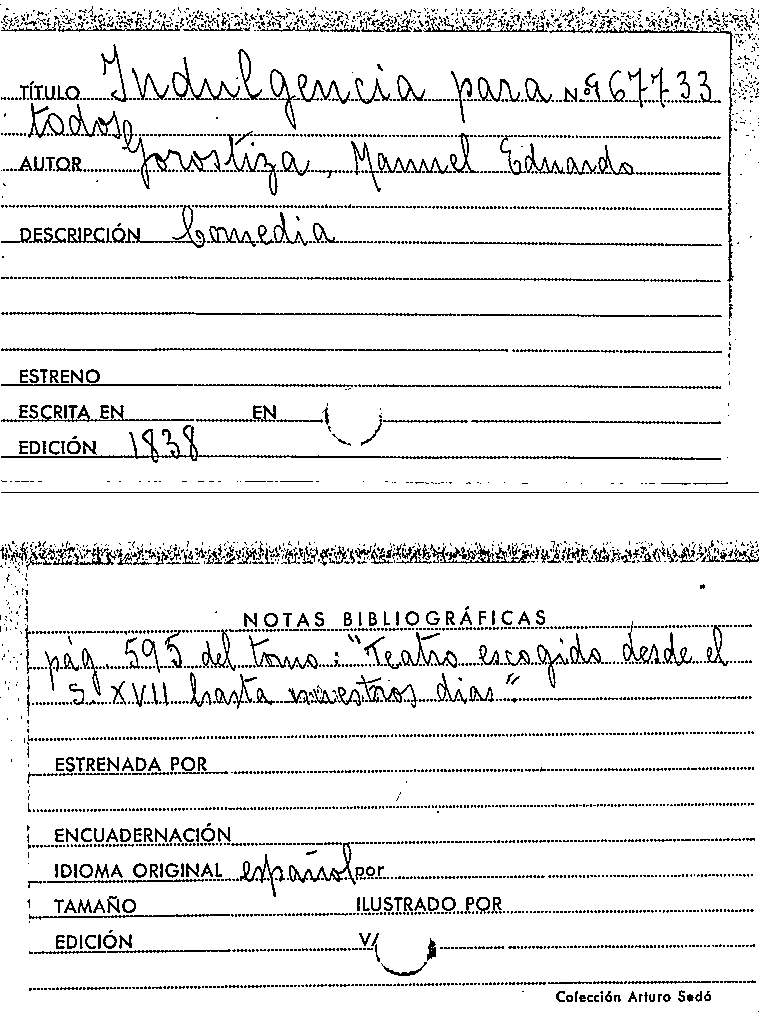 TÍTULO Indulgencia para Nº 67733
todos
AUTOR Gorostiza, Manuel Eduardo
DESCRIPCIÓN Comedia
ESTRENO
ESCRITA EN EN
EDICIÓN 1838
NOTAS BIBLIOGRÁFICAS
pág. 595 del tomo: "Teatro escogido desde el
s. XVII hasta nuestros dias".
ESTRENADA POR
ENCUADERNACIÓN
IDIOMA ORIGINAL español por
TAMAÑO ILUSTRADO POR
EDICIÓN V/
Colección Arturo Sedó